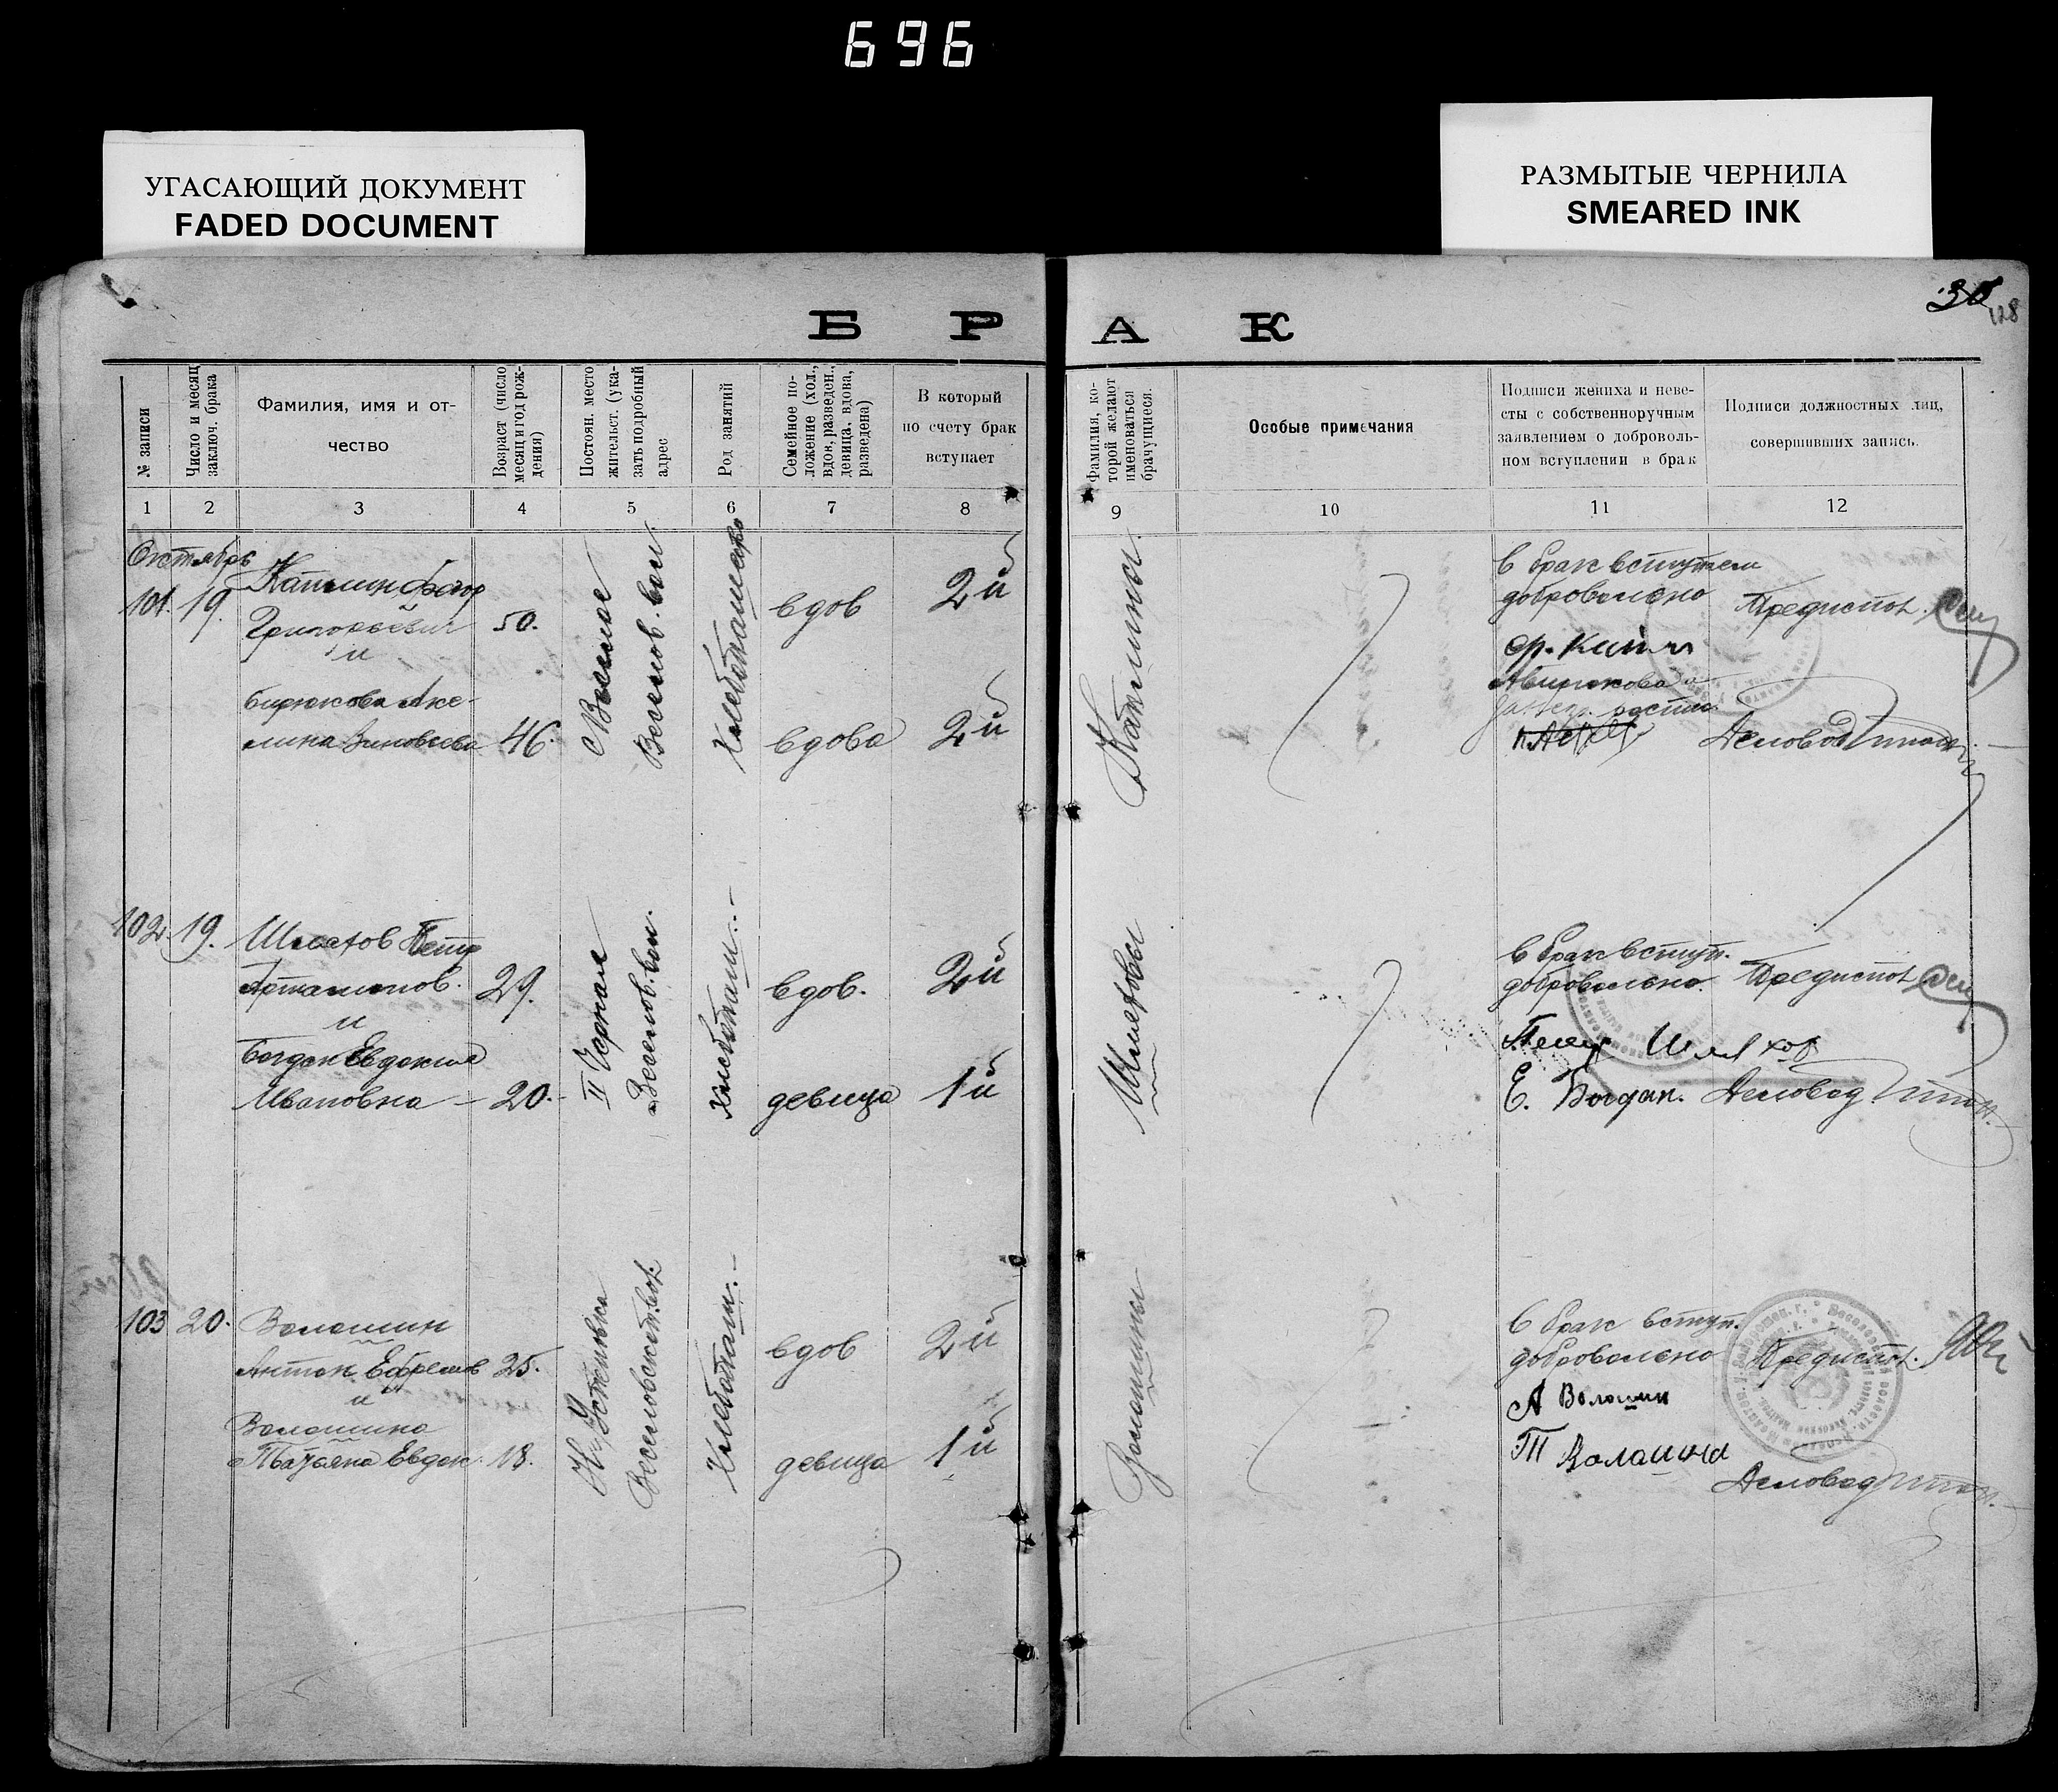 696
УГАСАЮЩИЙ ДОКУМЕНТ
FADED DOCUMENT
РАЗМЫТЫЕ ЧЕРНИЛА
SMEARED INK
30
128
Б Р А К
№ записи
Число и месяц
заключ. брака
Фамилия, имя и от-
чество
Возраст (число
месяц и год рож-
дения)
Постоян. место
жительст. (ука-
зать подробный
адрес
Род занятий
Семейное по-
ложение (хол.,
вдов, разведен.,
девица, вдова,
разведена)
В который
по счету брак
вступает
Фамилия, ко-
торой желают
именоваться
брачущиеся.
Особые примечания
Подписи жениха и неве-
сты с собственноручным
заявлением о доброволь-
ном вступлении в брак
Подписи должностных лиц,
совершивших запись.
1 2 3 4 5 6 7 8 9 10 11 12
Октябрь
101. 19.
Григорьевич
и
50.
Бирюкова Аке-
лина Зиновьева
46.
Веселое
Веселов. вол.
вдов
2й
вдова
2й
в брак вступаем
добровольно
Предиспол.
Деловод
102. 19.
Шляхов Петр
Артамонов.
29.
и
Богдан Евдокия
Ивановна – 20.
II Чернал
Веселов. вол.
Хлебопаш. –
вдов.
2й
девица
1й
Шляховы
в брак вступ.
добровольно.
Предиспол.
Петр Шляхов
Е. Богдан.
Деловод
103 20.
Волошин
Антон Ефремов 25.
и
Волошина
Татьяна Евдок. 18.
Н-Успеновка
Веселовск. вол.
Хлебопаш. –
вдов
2й
девица
1й
Волошины
в брак вступ.
добровольно
Предиспол.
А Волошин
Т Валашина
Деловод